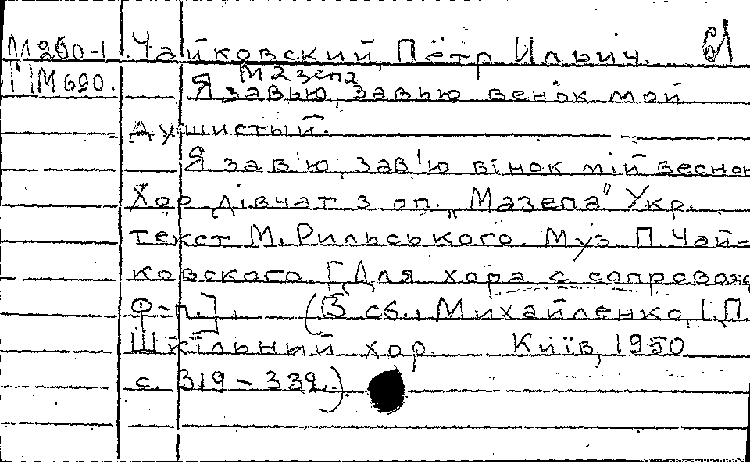 М260-1 Чайковский, Пётр Ильич. б1
М690. Мазепа
Я завью, завью венок мой
душистый.
Я зав'ю, зав'ю вінок мій весно
Хор дівчат з оп. „Мазепа" Укр.
текст М. Рильського. Муз П. Чай-
ковского [Для хора с сопровож
ф-п.]. (В сб.: Михайленко, І.П.
Шкільный хор. Київ, 1950
с. 319-332.)